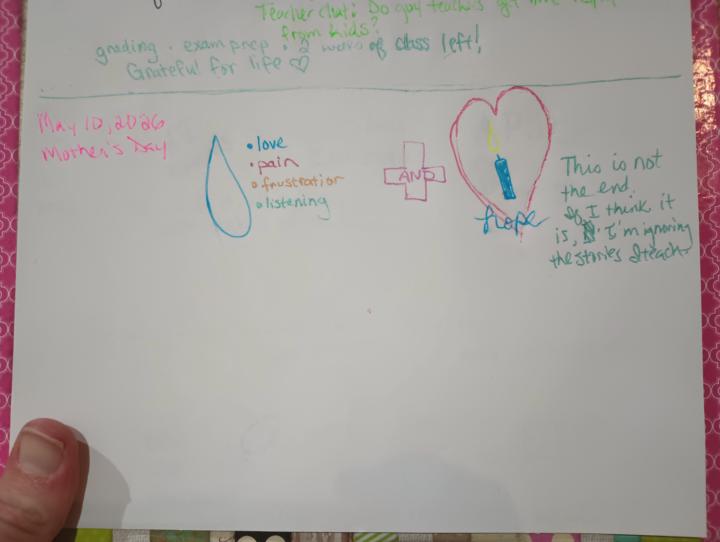 Teacher chat: Do gay teachers get more
from kids?
grading · exam prep · 2 weeks of class left!
Grateful for life
May 10, 2026
Mother's Day
• love
• pain
• frustration
• listening
AND
hope
This is not
the end.
If I think it
is, I'm ignoring
the stories I teach.